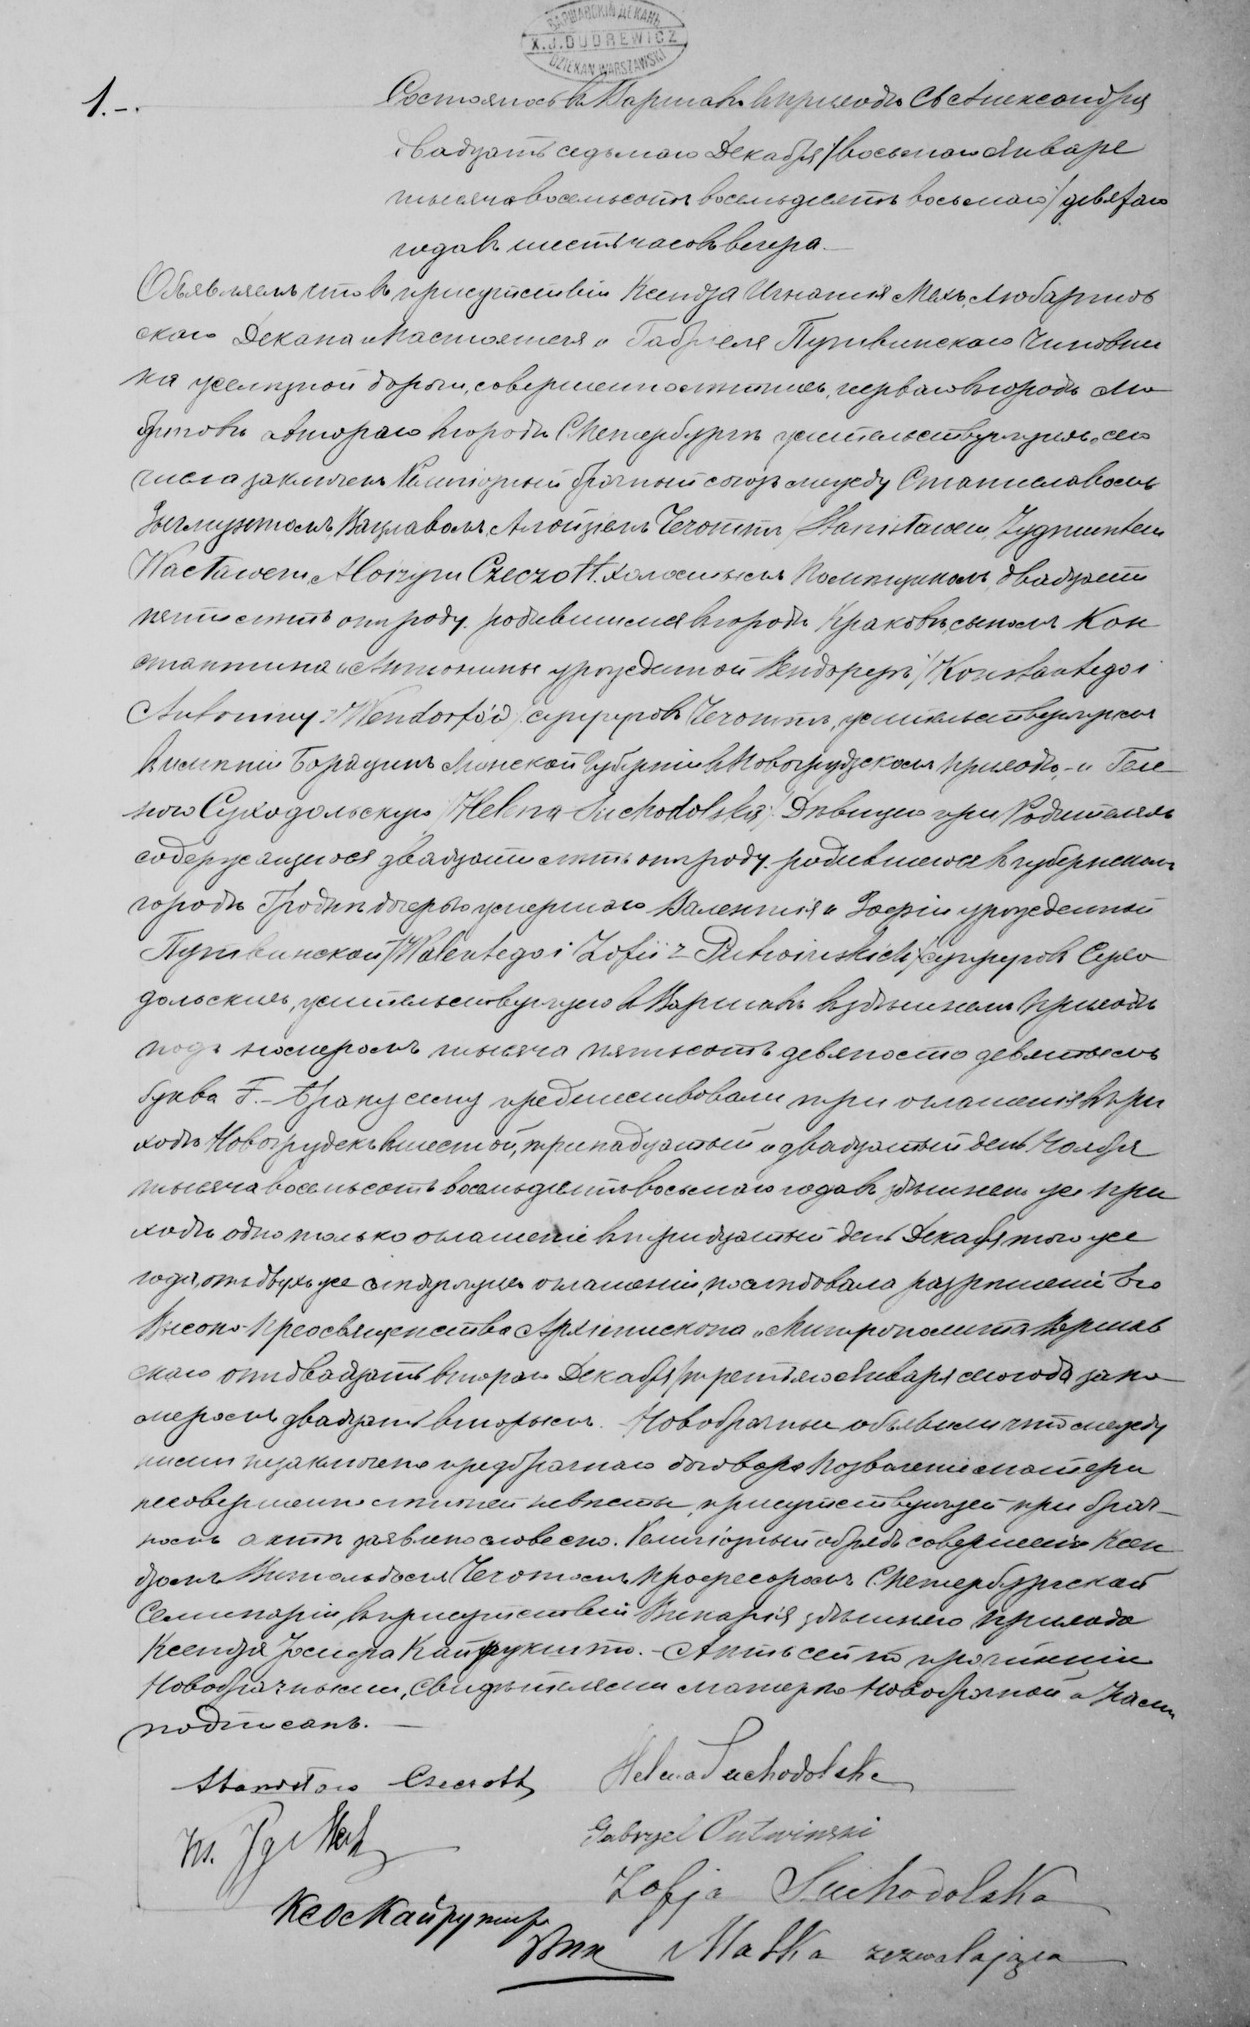 ВАРШАВСКІЙ ДЕКАНЪ
X. J. DUDREWICZ
DZIEKAN WARSZAWSKI
1.-.
Состоялось въ Варшавѣ въ приходѣ Св Александра
двадцать седьмаго Декабря / восьмаго Января
тысяча восемьсотъ восемьдесятъ восьмаго / девятаго
года въ шесть часовъ вечера.—
Объявляемъ что въ присутствіи Ксендза Игнатія Мехъ, Любартов
скаго Декана и Настоятеля и Габріеля Путвинскаго Чиновни
ка желѣзной дороги, совершеннолѣтнихъ, перваго въ городѣ Лю
бартовѣ а втораго въ городѣ СПетербургѣ жительствующихъ, сего
числа заключенъ Религіозный брачный союзъ между Станиславомъ
Зыгмунтомъ, Вацлавомъ, Алойзіемъ Чечоттъ / Stanisławem, Zygmuntem
Wacławem, Aloizym Czeczott. холостымъ помѣщикомъ, двадцати
пяти лѣтъ отъ роду, родившимся въ городѣ Краковѣ, сыномъ Кон
стантина и Антонины урожденной Вендорфъ / Konstantego i
Antoniny z Wendorfów / супруговъ Чечоттъ, жительствующимъ
въ имѣніи Борацинъ Минской Губерніи въ Новогрудскомъ приходѣ,- и Геле
ною Суходольскую / Helena Suchodolska / Дѣвицею при Родителяхъ
содержащеюся двадцати лѣтъ отъ роду, родившеюся въ губернскомъ
городѣ Гроднѣ дочерью умершаго Валентія и Зофіи урожденной
Путвинской / Walentego i Zofii z Putwińskich / супруговъ Сухо
дольскихъ, жительствующею въ Варшавѣ въ здѣшнемъ приходѣ
подъ номеромъ тысяча пятьсотъ девяносто девятымъ
буква F.- Браку сему предшествовали три оглашенія въ при
ходѣ Новогрудекъ въ шестой, тринадцатый и двадцатый день Ноября
тысяча восемьсотъ восемьдесятъ восьмаго года въ здѣшнемъ же при
ходѣ одно только оглашеніе въ тридцатый день Декабря того же
года, отъ двухъ же слѣдующихъ оглашеній, послѣдовало разрѣшеніе Его
Высоко Преосвященства Архіепископа и Митрополита Варшав
скаго отъ двадцать втораго Декабря / третьяго Января сего года за но
меромъ двадцать вторымъ. Новобрачные объявили что между
ними не заключено предбрачнаго договора Позволеніе матери
несовершеннолѣтней невѣсты, присутствующей при брач-
номъ актѣ заявлено словесно. Религіозный обрядъ совершенъ Ксен
дзомъ Витольдомъ Чечоттомъ профессоромъ С.Петербургской
Семинаріи, въ присутствіи Викарія здѣшнего прихода
Ксендза Іосифа Кайрукшто.- Актъ сей по прочтеніи
Новобрачными, Свидѣтелями матерью Новобрачной и Нами
подписанъ.—
Stanisław Czeczott
Helena Suchodolska
Gabryel Putwiński
Zofja Suchodolska
Matka zezwalająca